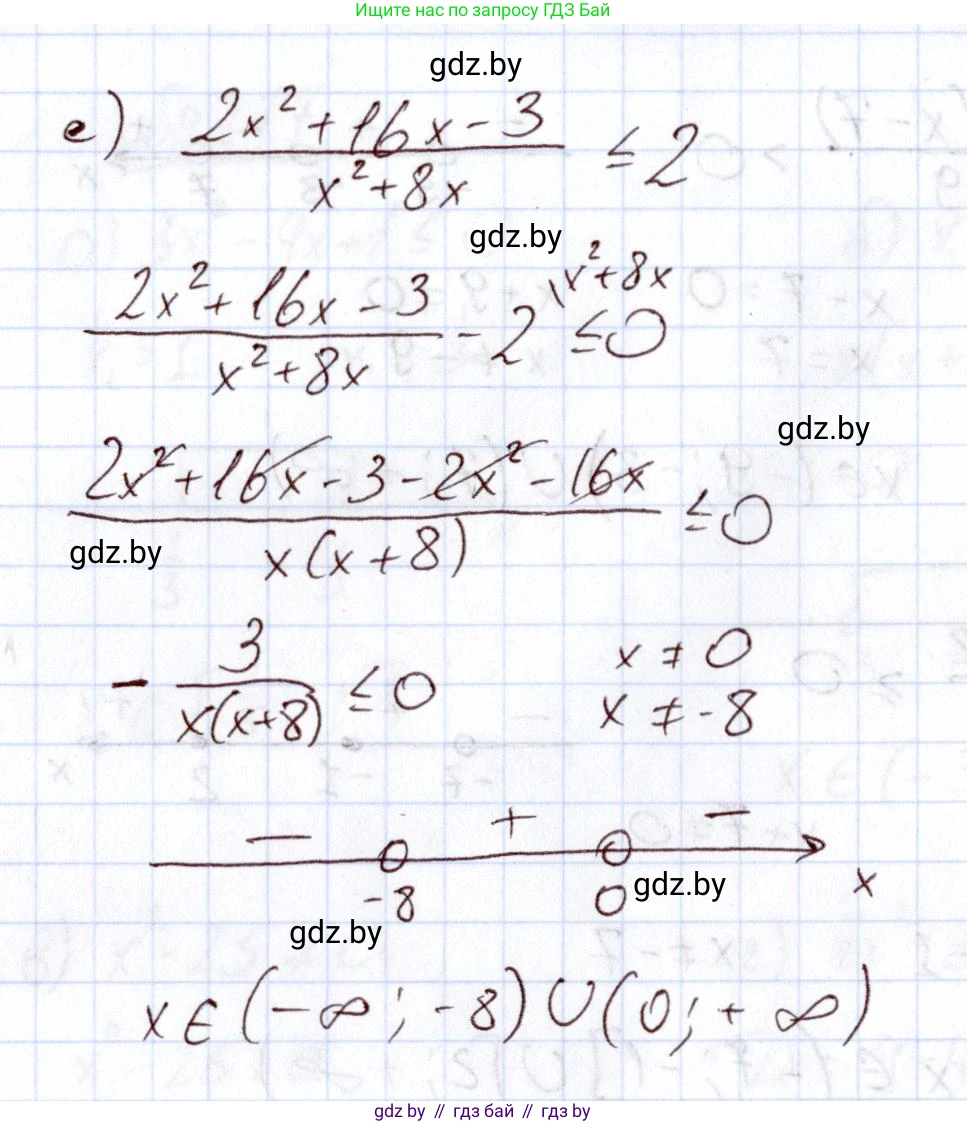 Ищите нас по запросу ГДЗ Бай
gdz.by
е) (2x² + 16x - 3)/(x² + 8x) ≤ 2
gdz.by
(2x² + 16x - 3)/(x² + 8x) - 2 \x² + 8x ≤ 0
gdz.by
(2x² + 16x - 3 - 2x² - 16x)/(x(x + 8)) ≤ 0
gdz.by
- 3/(x(x+8)) ≤ 0
x ≠ 0
x ≠ -8
- + -
-8 0 x
gdz.by
gdz.by
x ∈ (-∞; -8) ∪ (0; +∞)
gdz.by // гдз бай // гдз by